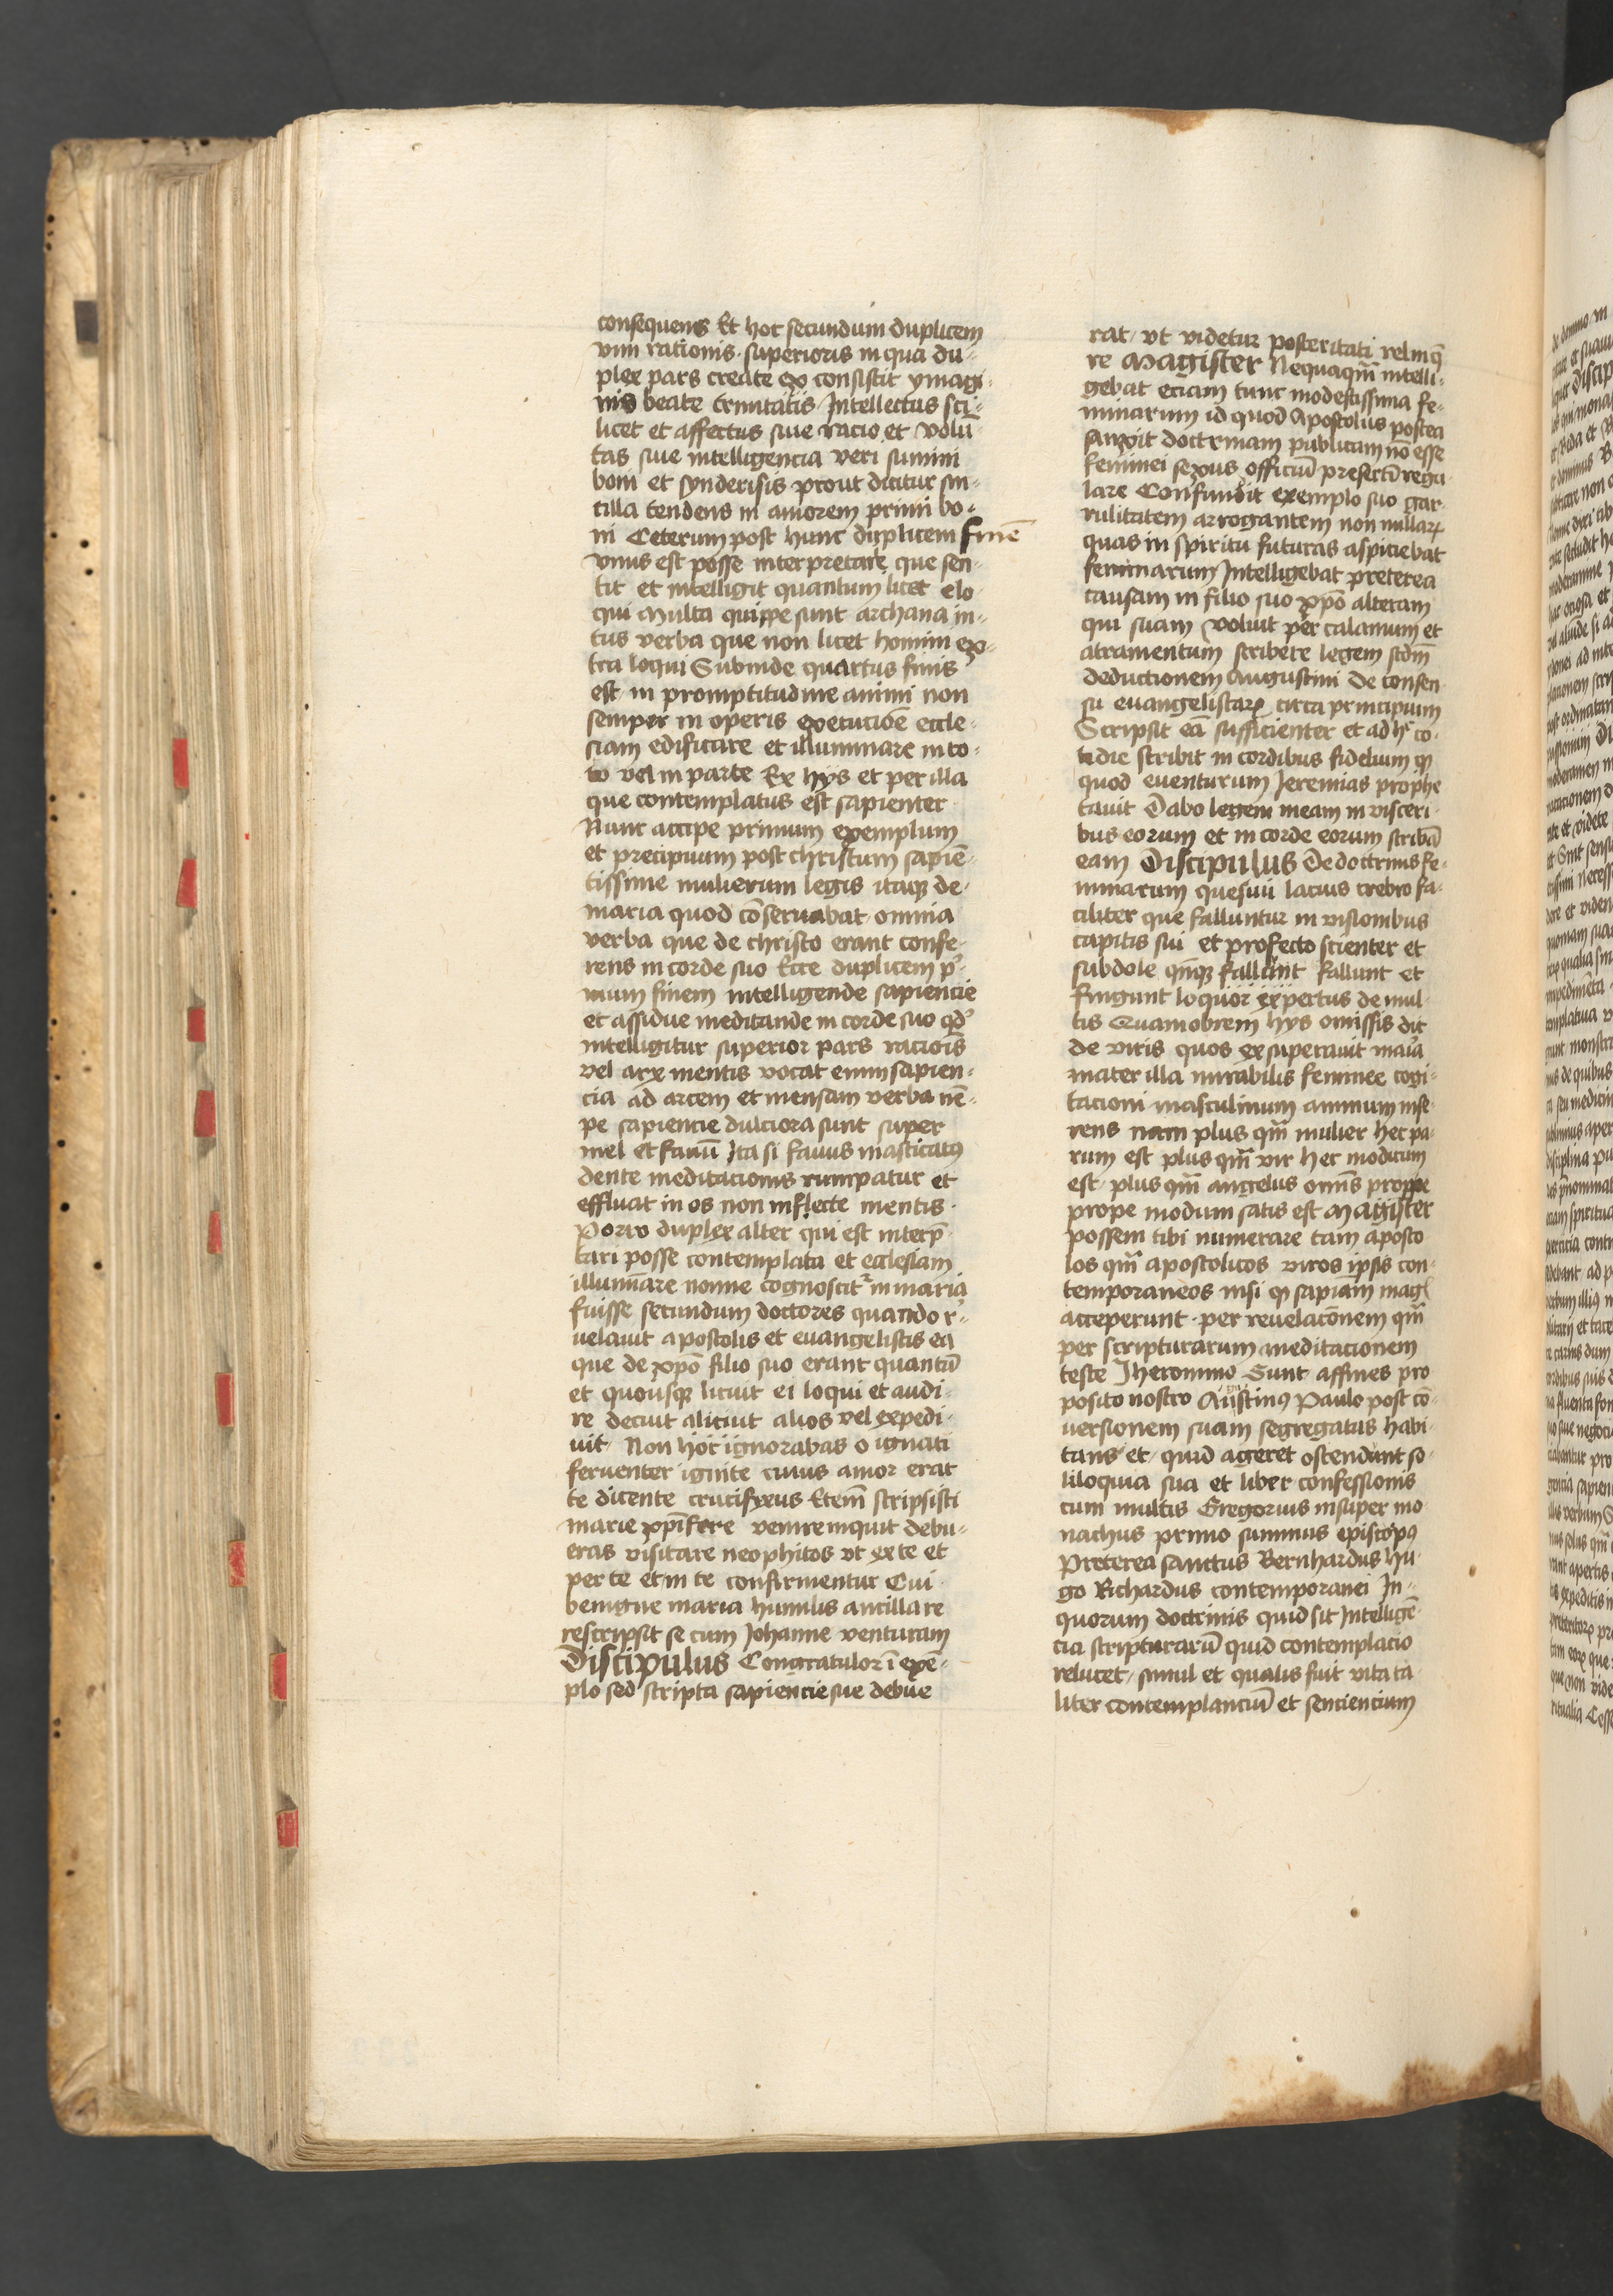 consequens Et hoc secundum duplicem
vim rationis superioris in qua du-
plex pars create ex consistit ymagi-
nis beate trinitatis Intellectus sci-
licet et affectus siue racio et volū-
tas siue intelligencia veri summi
boni et synderisis prout dicitur sin-
tilla tendens in amorem primi bo-
ni Ceterum post hunc duplicem finē
vnus est posse interpretare que sen-
tit et intelligit quantum licet elo-
qui Multa quippe sunt archana in-
tus verba que non licet homini ex-
tra loqui Subinde quartus finis
est in promptitudine animi non
semper in operis execucioē eccle-
siam edificare et illuminare in to-
to vel in parte Ex hys et per illa
que contemplatus est sapienter
Nunc accipe primum exemplum
et precipuum post christum sapiē-
tissime mulierum legis itaqꝫ de
maria quod cōseruabat omnia
verba que de christo erant confe-
rens in corde suo Ecce duplicem pⁱ-
mum finem intelligende sapiencie
et assidue meditande in corde suo qd'
intelligitur superior pars racioīs
vel arx mentis vocat enim sapien-
cia ad arcem et mensam verba nē-
pe sapiencie dulciora sunt super
mel et fauū Ita si fauus masticatꝰ
dente meditacionis rumpatur et
effluat in os non inflecte mentis
Porro duplex alter qui est interp̄-
tari posse contemplata et ecclesiam
illumīare nonne cognoscitᷣ in maria
fuisse secundum doctores quando r'-
uelauit apostolis et euangelistis ea
que de xp̄o filio suo erant quantū
et quousqꝫ licuit ei loqui et audi-
re decuit aliciut alios vel expedi-
uit Non hoc ignorabas o ignati
feruenter ignite cuius amor erat
te dicente crucifixus Etem̄ scripsisti
marie xp̄ifere venire inquit debu-
eras visitare neophitos vt ex te et
per te et in te confirmentur Cui
benigne maria humilis ancilla re
rescripsit se cum Johanne venturam
Discipulus Congratulor ī exe-
plo sed scripta sapiencie sue debue
rat vt videtur posteritati relinq̄
re Magister Nequaqm̄ intelli-
gebat eciam tunc modestissima fe-
minarum id quod Apostolus postea
sanxit doctrinam publicam nō esse
feminei sexus officiū presertī regu
lare Confundit exemplo suo gar-
rulitatem arrogantem non nullarꝫ
quas in spiritu futuras aspiciebat
feminarum Intelligebat preterea
causam in filio suo xp̄o alteram
qui suam voluit per calamum et
atramentum scribere legem scd̄m
deductionem Augustini de consen
su euangelistarꝫ circa principium
Scripsit eā sufficienter et ad hᶜ co-
tidie scribit in cordibus fidelium qꝫ
quod euenturum Jeremias prophe
tauit Dabo legem meam in visceri-
bus eorum et in corde eorum scribā
eam Discipulus De doctrinis fe-
minarum quesiui lacius crebro fa-
ciliter que falluntur in visionibus
capitis sui et profecto scienter et
subdole qn̄qꝫ fallunt fallunt et
fingunt loquor expertus de mul-
tis Quamobrem hys omissis dic
de viris quos exsuperauit maīa
mater illa mirabilis feminee cogi-
tacioni masculinum animum inse-
rens nam plus qm̄ mulier hec pa-
rum est plus qm̄ vir hec modicum
est plus qm̄ angelus omīs proppe
prope modum satis est Magister
possem tibi numerare tam aposto
los qm̄ apostolicos viros ipsis con-
temporaneos nisi qꝫ sapiam̄ mag̃
acceperunt per reuelacōnem qm̄
per scripturarum meditacionem
teste Jheronimo Sunt affines pro
posito nostro Austinꝰ Paulo post cō-
uersionem suam segregatus habi-
tans et quid ageret ostendunt so-
liloquia sua et liber confessionis
cum multis Gregorius insuper mo
nachus primo summus episcopꝰ
Preterea sanctus Bernhardus hu-
go Richardus contemporanei In
quorum doctrinis quid sit Intelligē-
cia scripturarū quid contemplacio
relucet simul et qualis fuit vita ta
liter contemplanciū et senciencium